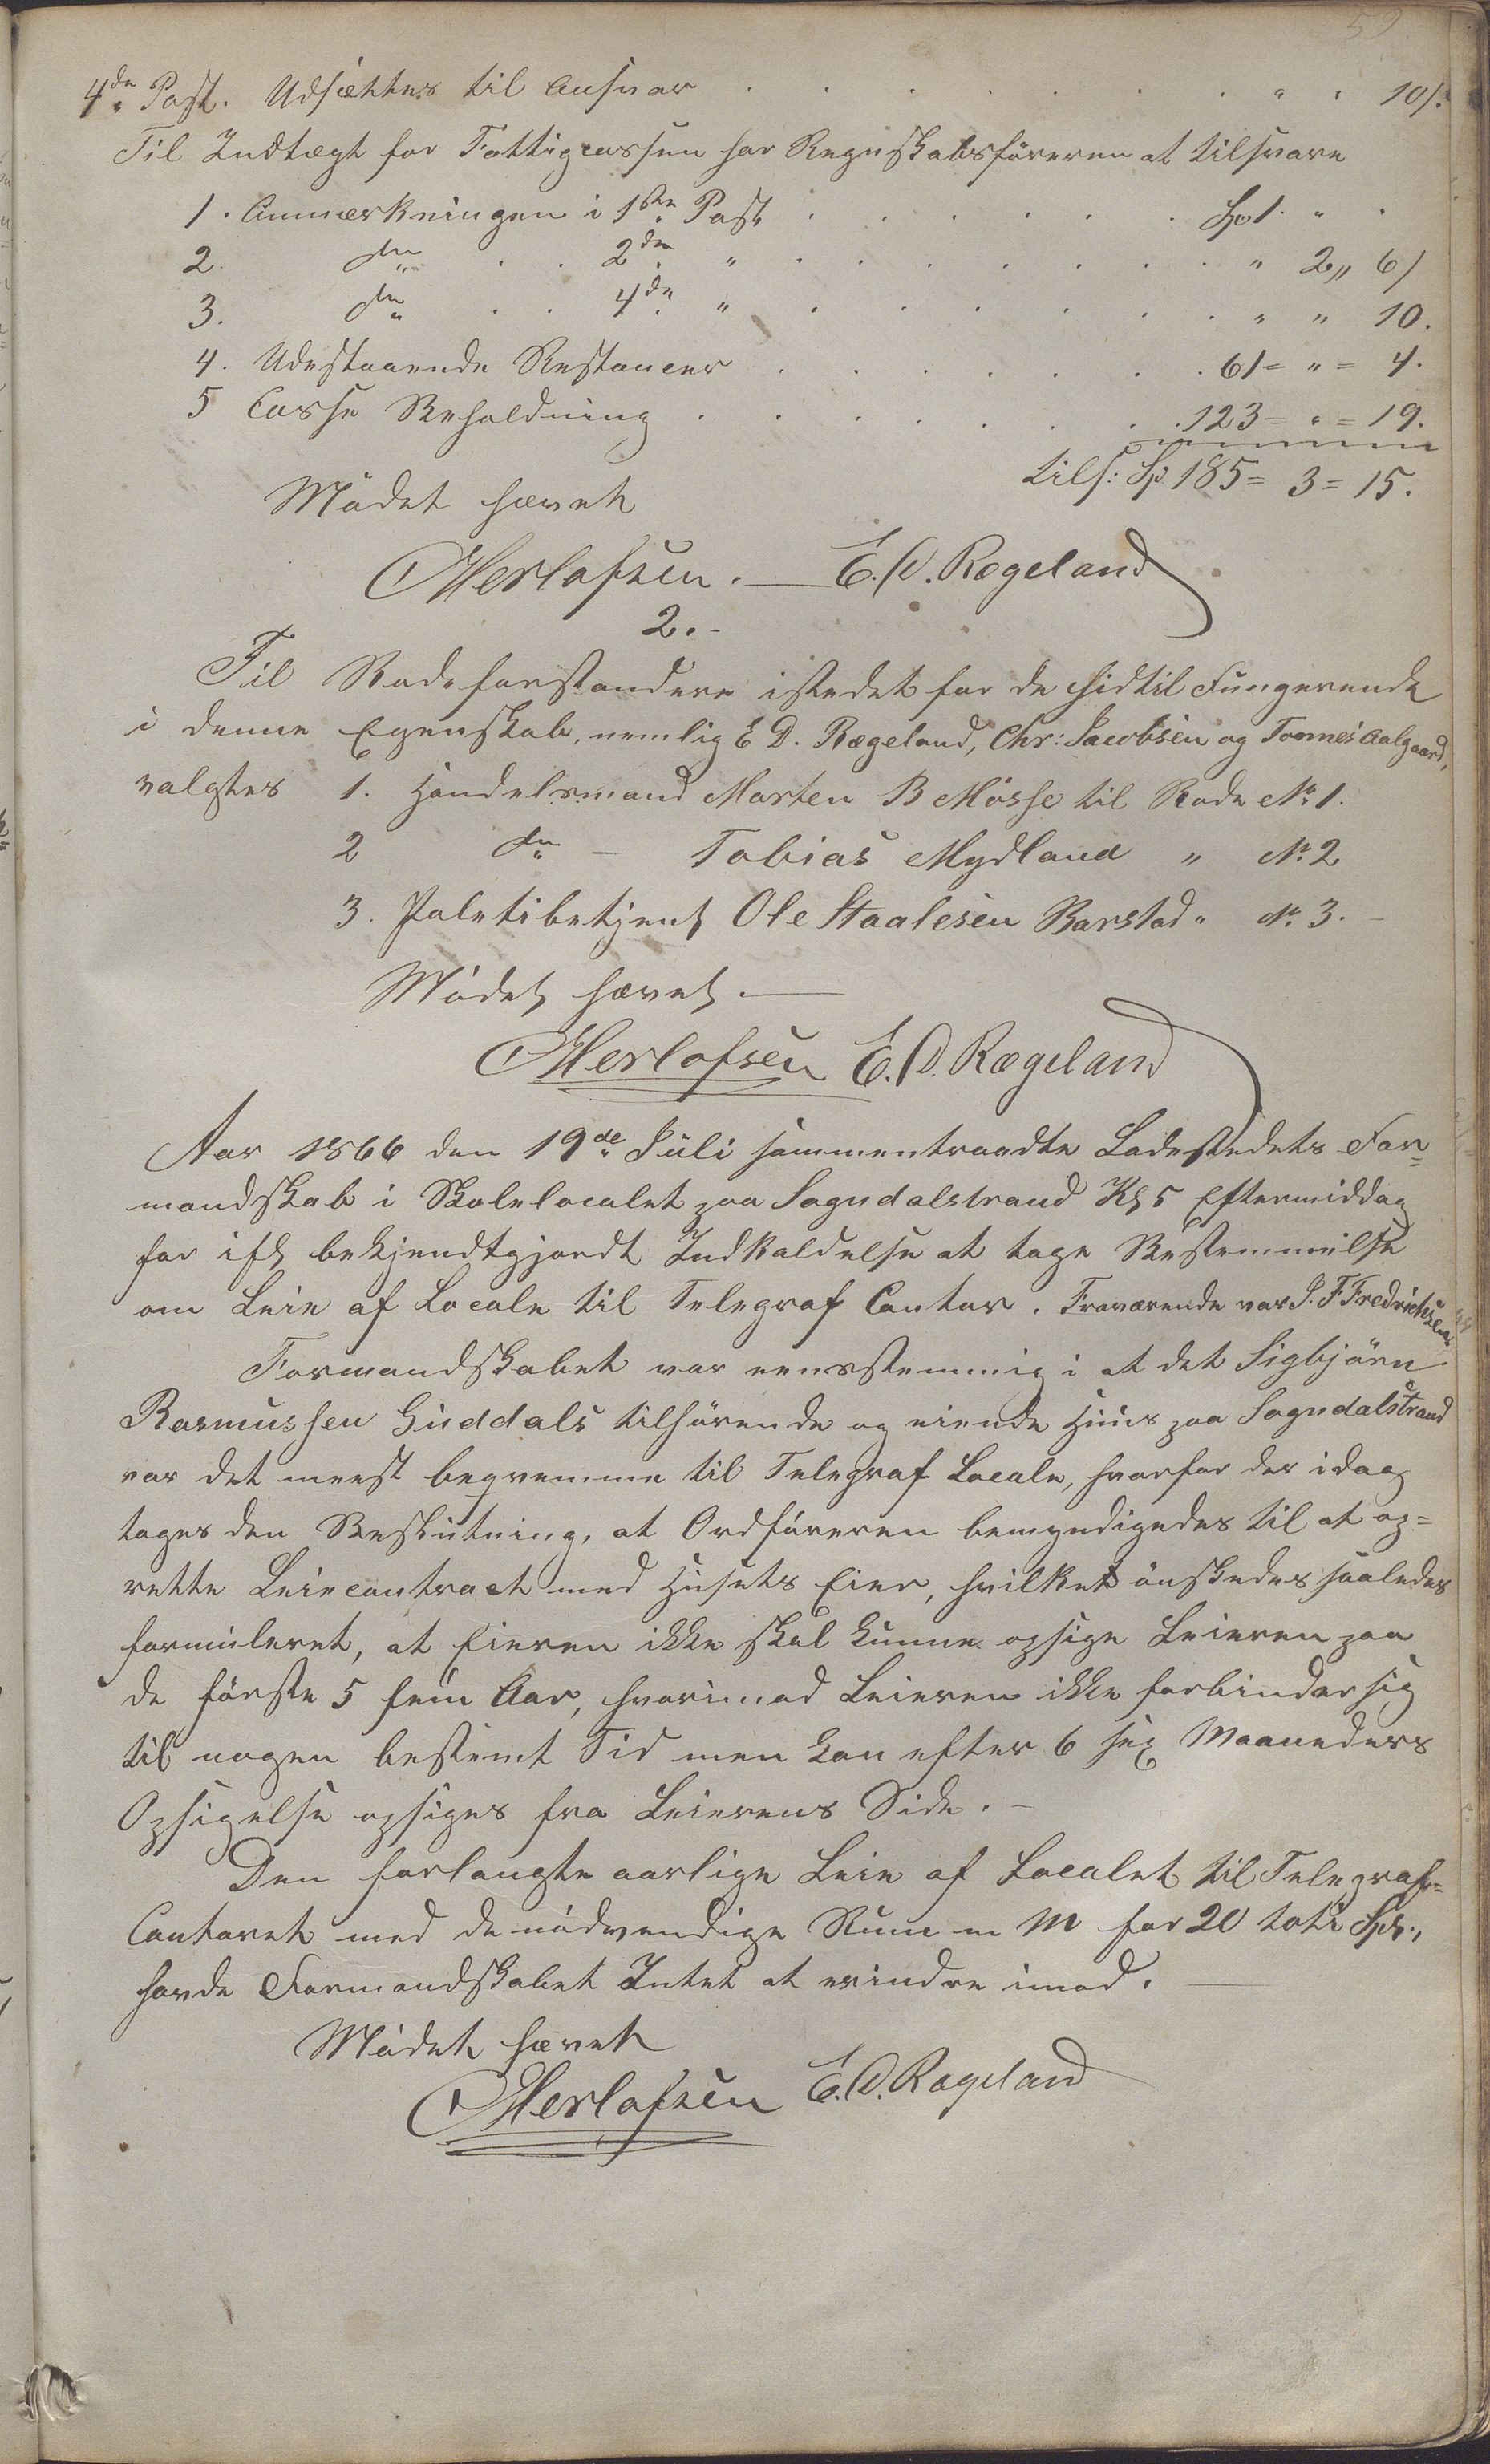 59
4de Post. Udsættes til Ansvar . . . . . . . " " 10/.
Til Indtægt for Fattigcassen har Regnskabsföreren at tilsvare
1. Anmærkningen i 1ste Post . . . . . Sp 1. "
2. do . . 2den " . . . . . . " 2 " 6/
3. do . . 4de " . . . . . . " " 10.
4. Udestaaende Restancer . . . . . . 61 = " = 4.
5 Casse Beholdning . . . . . . 123 = " = 19.
tils: Sp 185 = 3 = 15.
Mödet hævet
Herlofsen. — E. D. Rægeland
2.-
Til Rodeforstandere istedet for de hidtil Fungerende
i denne Egenskab, nemlig E D. Rægeland, Chr: Jacobsen og Tonnes Aalgaard,
valgtes 1. Handelsmand Morten B Mosse til Rode No 1.
2 do — Tobias Mydland " No 2
3. Poletibetjent Ole Staalesen Barstad " No 3. -
Mödet hævet. —
Herlofsen E. D. Rægeland
Aar 1866 den 19de Juli sammentraadte Ladestedets For=
mandskab i Skolelocalet paa Sogndalstrand Kl 5 Eftermiddag
for ifl bekjendtgjordt Indkaldelse at tage Bestemmelse
om Leie af Locale til Telegraf Contor. Fraværende var J. F Fredrichsen
Formandskabet var eensstemmig i at det Sigbjörn
Rasmussen Guddals tilhörende og eiende Huus paa Sogndalstrand
var det meest beqvemme til Telegraf Locale, hvorfor der idag
toges den Beslutning, at Ordföreren bemyndigedes til at op=
rette Leiecontract med Husets Eier, hvilket önskedes saaledes
formuleret, at Eieren ikke skal kunne opsige Leieren paa
de förste 5 fem Aar, hvorimod Leieren ikke forbinder sig
til nogen bestemt Tid men kan efter 6 sex Maaneders
Opsigelse opsiges fra Leierens Side. -
Den forlangte aarlige Leie af Localet til Telegraf=
Contoret med de nödvendige Rum m M for 20 toti Spd.,
havde Formandskabet Intet at erindre imod. —
Mödet hævet
Herlofsen E. D. Rægeland